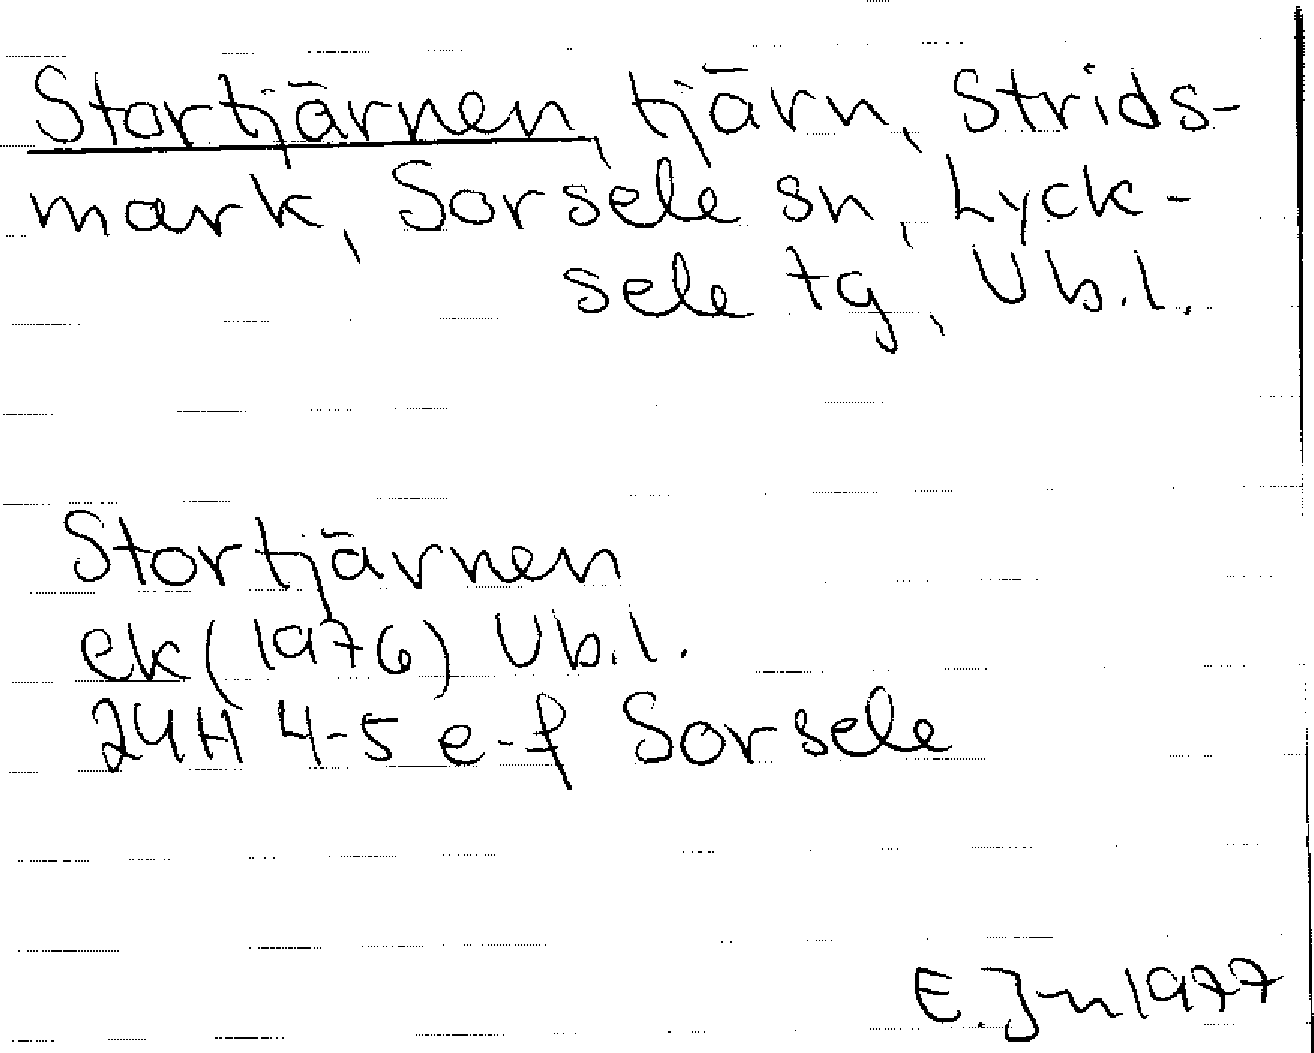 Stortjärnen, tjärn, Strids-
mark, Sorsele sn, Lyck-
sele tg, Vb.l.
Stortjärnen
ek (1976) Vb.l.
24H 4-5 e-f Sorsele
E. J-n 1977